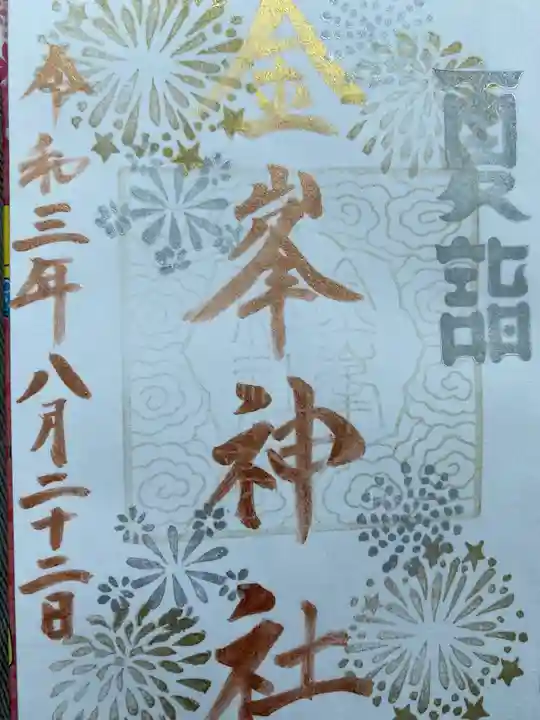 夏詣
金峯神社
令和三年八月二十二日